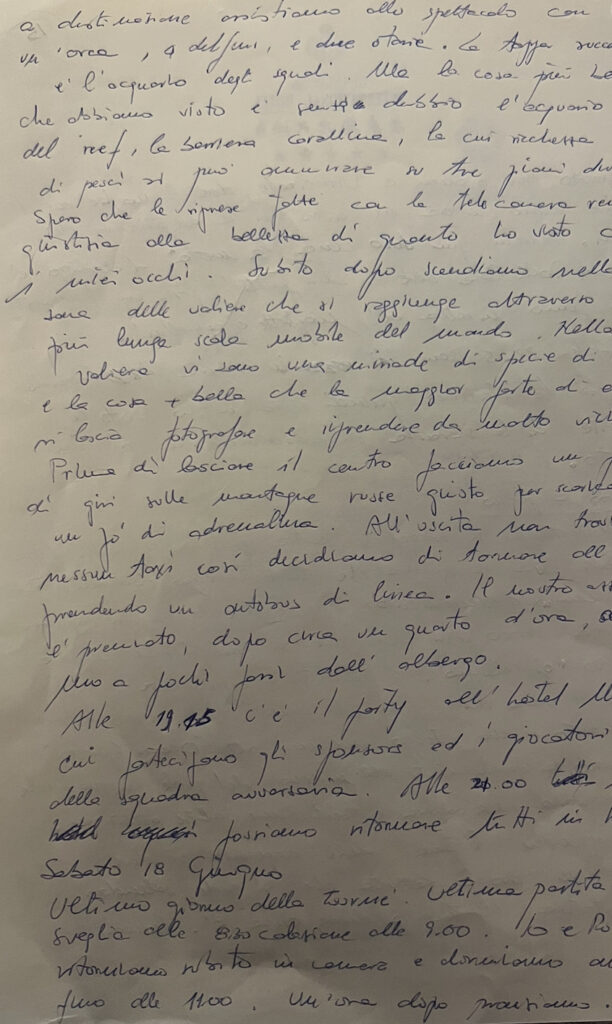 a destinazione assistiamo allo spettacolo con
un'orca, 4 delfini, e due otarie. La tappa succe
e' l'acquario degli squali. Ma la cosa più be
che abbiamo visto e' senza dubbio l'acquario
del reef, la barriera corallina, la cui ricchezza
di pesci si può ammirare su tre piani di
Spero che le riprese fatte con la telecamera ren
giustizia alla bellezza di quanto ho visto c
i miei occhi. Subito dopo scendiamo nella
zona delle voliere che si raggiunge attraverso
più lunga scala mobile del mondo. Nella
voliera vi sono una miriade di specie di
e la cosa + bella che la maggior parte di e
si lascia fotografare e riprendere da molto vici
Prima di lasciare il centro facciamo un p
di giri sulle montagne russe giusto per scarica
un pò di adrenalina. All'uscita non trov
nessun taxi così decidiamo di tornare all'
prendendo un autobus di linea. Il nostro
e' premiato, dopo circa un quarto d'ora,
mo a pochi passi dall'albergo.
Alle 19.15 c'è il party all'hotel
cui partecipano gli sponsors ed i giocatori
della squadra avversaria. Alle 21.00
possiamo ritornare tutti in h
Sabato 18 Giugno
Ultimo giorno della Tourné. Ultima partita
sveglia alle 8.30 colazione alle 9.00. Io e Ro
ritorniamo subito in camera e dormiamo
fino alle 11.00. Un'ora dopo pranziamo.